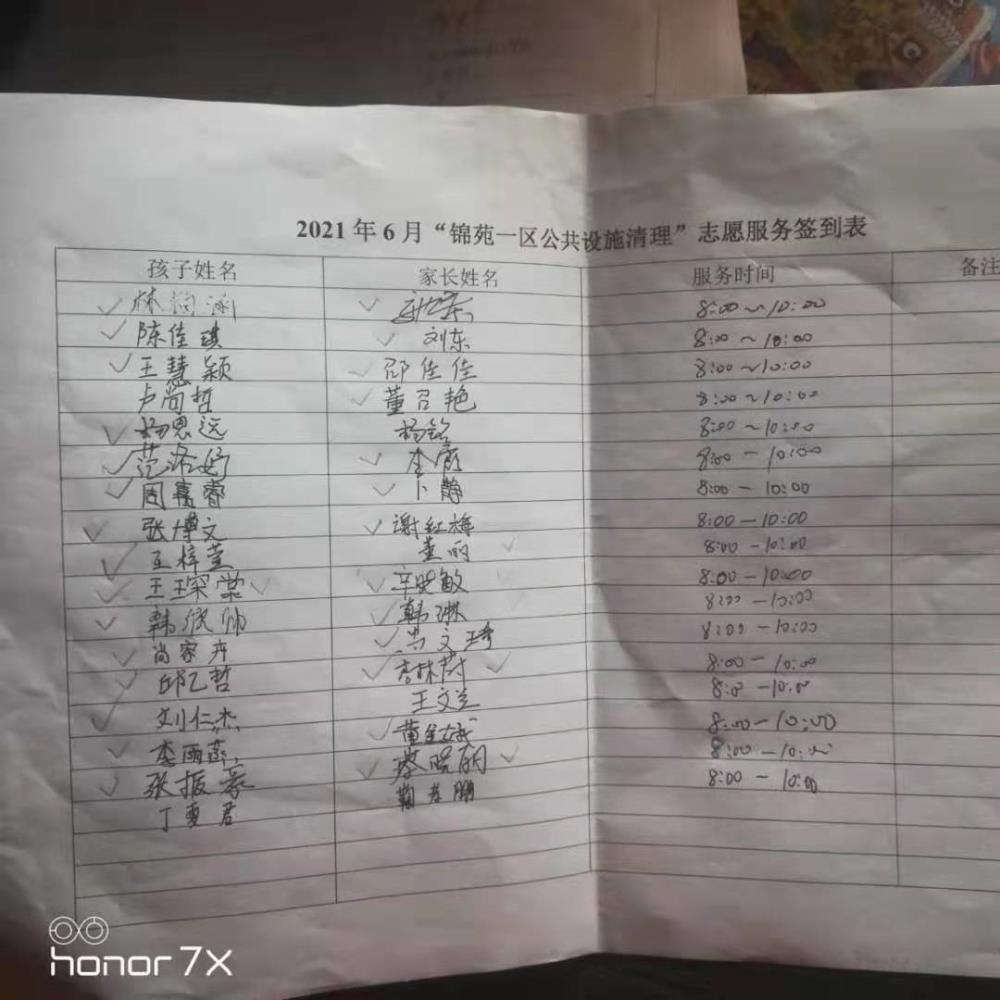 2021年6月“锦苑一区公共设施清理”志愿服务签到表
孩子姓名 家长姓名 服务时间 备注
林 8:00~10:00
陈佳琪 刘东 8:00~10:00
王慧颖 邵佳佳 8:00~10:00
卢尚哲 董召艳 8:00~10:00
杨思远 杨铭 8:00~10:00
范洛妤 8:00-10:00
周熹睿 卜静 8:00-10:00
张博文 谢红梅 8:00-10:00
王梓萱 董丽 8:00-10:00
王琛棠 辛晓敏 8:00-10:00
韩欣帅 韩琳 8:00-10:00
尚家卉 尚文琦 8:00-10:00
邱乙哲 8:00-10:00
刘仁杰 王文兰 8:00-10:00
李雨燕 黄金娥 8:00-10:00
张振豪 蔡晓丽 8:00-10:00
丁雯君 鹏 8:00-10:00
honor 7X